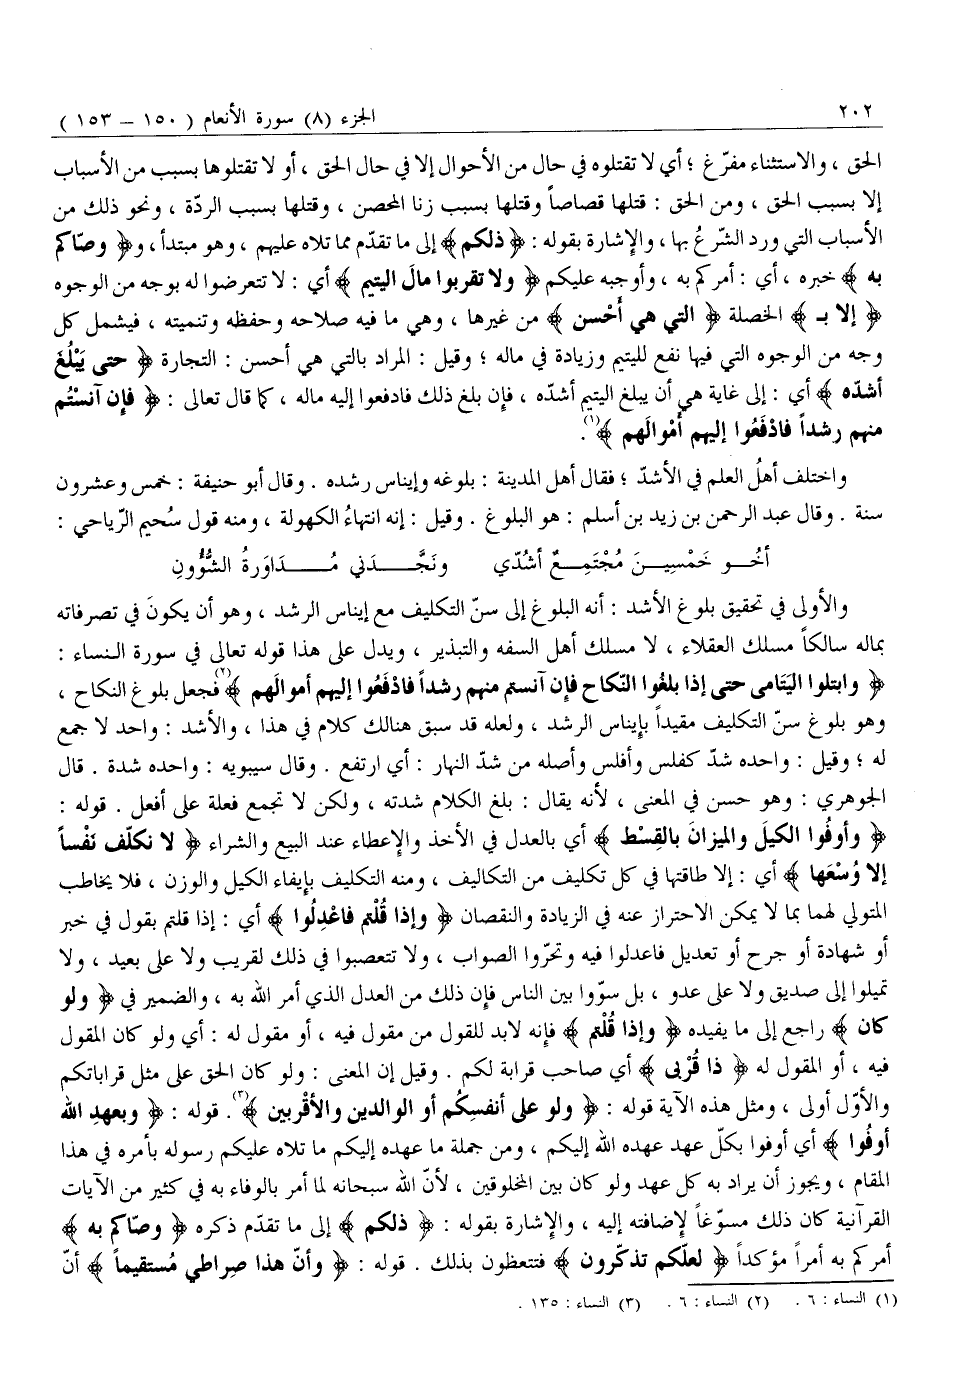 ٢٠٢ الجزء (٨) سورة الأنعام ( ١٥٠ – ١٥٣ )
الحق ، والاستثناء مفرّغ ؛ أي لا تقتلوه في حال من الأحوال إلا في حال الحق ، أو لا تقتلوها بسبب من الأسباب
إلا بسبب الحق ، ومن الحق : قتلها قصاصاً وقتلها بسبب زنا المحصن ، وقتلها بسبب الردّة ، ونحو ذلك من
الأسباب التي ورد الشرّعُ بها ، والإشارة بقوله : ﴿ ذلكم ﴾ إلى ما تقدّم مما تلاه عليهم ، وهو مبتدأ ، و﴿ وصّاكم
به ﴾ خبره ، أي : أمركم به ، وأوجبه عليكم ﴿ ولا تقربوا مالَ اليتيم ﴾ أي : لا تتعرضوا له بوجه من الوجوه
﴿ إلا بـ ﴾ الخصلة ﴿ التي هي أحْسن ﴾ من غيرها ، وهي ما فيه صلاحه وحفظه وتنميته ، فيشمل كل
وجه من الوجوه التي فيها نفع لليتيم وزيادة في ماله ؛ وقيل : المراد بالتي هي أحسن : التجارة ﴿ حتى يَبْلُغَ
أشدّه ﴾ أي : إلى غاية هي أن يبلغ اليتيم أشدّه ، فإن بلغ ذلك فادفعوا إليه ماله ، كما قال تعالى : ﴿ فإن آنسْتُم
منهم رشداً فادْفَعُوا إليهم أمْوالَهم ﴾(١).
واختلف أهلُ العلم في الأشدّ ؛ فقال أهل المدينة : بلوغه وإيناس رشده . وقال أبو حنيفة : خمس وعشرون
سنة . وقال عبد الرحمن بن زيد بن أسلم : هو البلوغ . وقيل : إنه انتهاءُ الكهولة ، ومنه قول سُحيم الرّياحي :
أخُــو خَمْسِيــنَ مُجْتَمِــعٌ أشُدّي ونَجَّــذَني مُــدَاوَرةُ الشُّؤُونِ
والأولى في تحقيق بلوغ الأشد : أنه البلوغ إلى سنّ التكليف مع إيناس الرشد ، وهو أن يكونَ في تصرفاته
بماله سالكاً مسلك العقلاء ، لا مسلك أهل السفه والتبذير ، ويدل على هذا قوله تعالى في سورة النساء :
﴿ وابتلوا اليَتامى حتى إذا بلغُوا النّكاح فإن آنستم منهم رشداً فادْفَعُوا إليهم أموالهم ﴾(٢) فجعل بلوغ النكاح ،
وهو بلوغ سنّ التكليف مقيداً بإيناس الرشد ، ولعله قد سبق هنالك كلام في هذا ، والأشد : واحد لا جمع
له ؛ وقيل : واحده شدّ كفلس وأفلس وأصله من شدّ النهار : أي ارتفع . وقال سيبويه : واحده شدة . قال
الجوهري : وهو حسن في المعنى ، لأنه يقال : بلغ الكلام شدته ، ولكن لا تجمع فعلة على أفعل . قوله :
﴿ وأوفُوا الكيلَ والميزانَ بالقِسْط ﴾ أي بالعدل في الأخذ والإعطاء عند البيع والشراء ﴿ لا نكلّف نَفْساً
إلا وُسْعَها ﴾ أي : إلا طاقتها في كل تكليف من التكاليف ، ومنه التكليف بإيفاء الكيل والوزن ، فلا يخاطب
المتولي لهما بما لا يمكن الاحتراز عنه في الزيادة والنقصان ﴿ وإذا قُلْتم فاعْدِلُوا ﴾ أي : إذا قلتم بقول في خبر
أو شهادة أو جرح أو تعديل فاعدلوا فيه وتحرّوا الصواب ، ولا تتعصبوا في ذلك لقريب ولا على بعيد ، ولا
تميلوا إلى صديق ولا على عدو ، بل سوّوا بين الناس فإن ذلك من العدل الذي أمر الله به ، والضمير في ﴿ ولو
كان ﴾ راجع إلى ما يفيده ﴿ وإذا قُلْتم ﴾ فإنه لابد للقول من مقول فيه ، أو مقول له : أي ولو كان المقول
فيه ، أو المقول له ﴿ ذا قُرْبى ﴾ أي صاحب قرابة لكم . وقيل إن المعنى : ولو كان الحق على مثل قراباتكم
والأوّل أولى ، ومثل هذه الآية قوله : ﴿ ولو على أنفسِكُم أو الوالدين والأقْربين ﴾(٣). قوله : ﴿ وبعهدِ الله
أوفُوا ﴾ أي أوفوا بكلّ عهد عهده الله إليكم ، ومن جملة ما عهده إليكم ما تلاه عليكم رسوله بأمره في هذا
المقام ، ويجوز أن يراد به كل عهد ولو كان بين المخلوقين ، لأنّ الله سبحانه لما أمر بالوفاء به في كثير من الآيات
القرآنية كان ذلك مسوّغاً لإضافته إليه ، والإشارة بقوله : ﴿ ذلكم ﴾ إلى ما تقدّم ذكره ﴿ وصّاكم به ﴾
أمركم به أمراً مؤكداً ﴿ لعلّكم تذكّرون ﴾ فتتعظون بذلك . قوله : ﴿ وأنّ هذا صِراطي مُستقيماً ﴾ أنّ
(١) النساء : ٦ . (٢) النساء : ٦ . (٣) النساء : ١٣٥ .